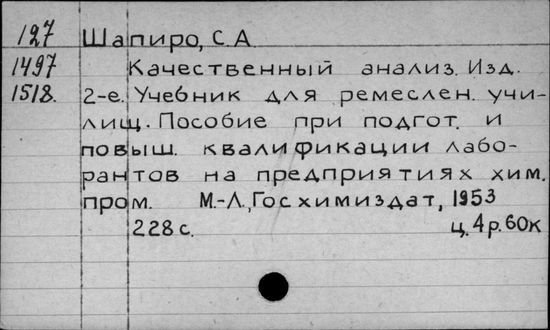 127 Шапиро, С.А.
1497 Качественный анализ. Изд.
1518. 2-е. Учебник для ремеслен. учи-
лищ. Пособие при подгот. и
повыш. квалификации лабо-
рантов на предприятиях хим.
пром. М.-Л., Госхимиздат, 1953
228 с. ц. 4 р. 60к